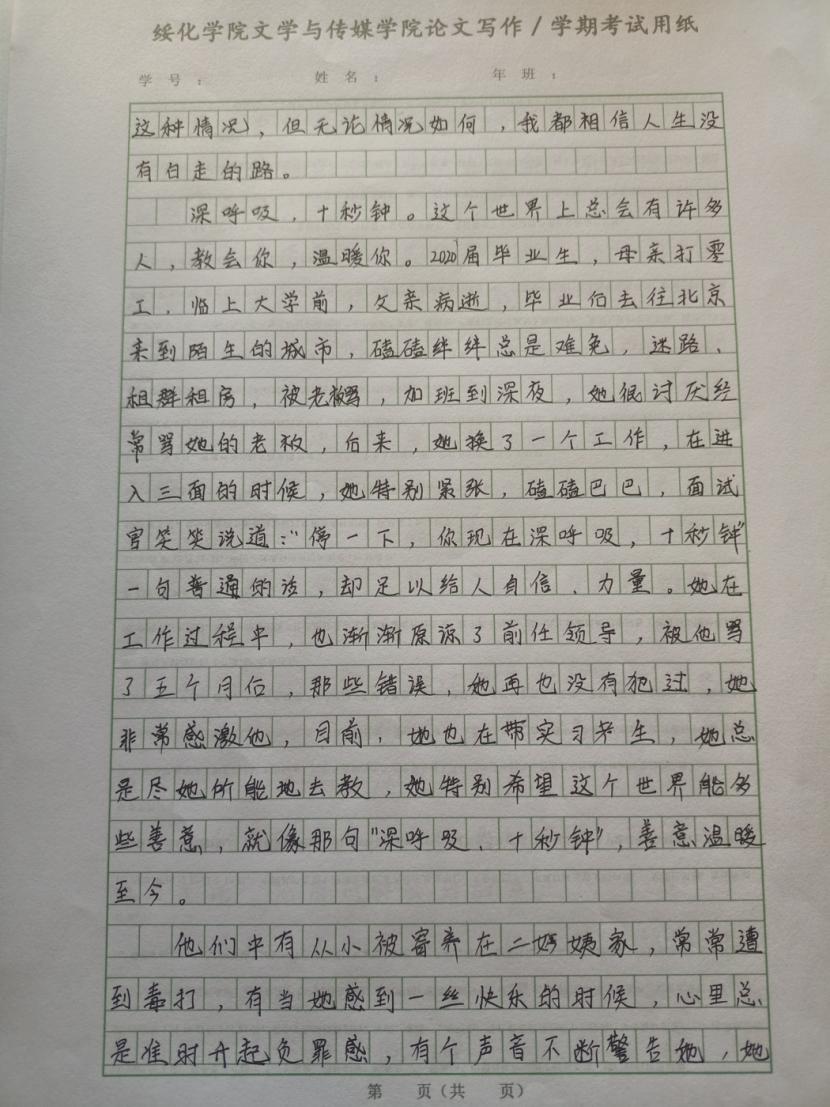 绥化学院文学与传媒学院论文写作/学期考试用纸
学号： 姓名： 年班：
这种情况，但无论情况如何，我都相信人生没
有白走的路。
深呼吸，十秒钟。这个世界上总会有许多
人，教会你，温暖你。2020届毕业生，母亲打零
工，临上大学前，父亲病逝，毕业后去往北京
来到陌生的城市，磕磕绊绊总是难免，迷路、
租群租房，被老板骂，加班到深夜，她很讨厌经
常骂她的老板，后来，她换了一个工作，在进
入三面的时候，她特别紧张，磕磕巴巴，面试
官笑笑说道：“停一下，你现在深呼吸，十秒钟”
一句普通的话，却足以给人自信、力量。她在
工作过程中，也渐渐原谅了前任领导，被他骂
了五个月后，那些错误，她再也没有犯过，她
非常感激他，目前，她也在带实习学生，她总
是尽她所能地去教，她特别希望这个世界能多
些善意，就像那句“深呼吸、十秒钟”，善意温暖
至今。
他们中有从小被寄养在二姨家，常常遭
到毒打，有当她感到一丝快乐的时候，心里总
是准时升起负罪感，有个声音不断警告她，她
第 页（共 页）